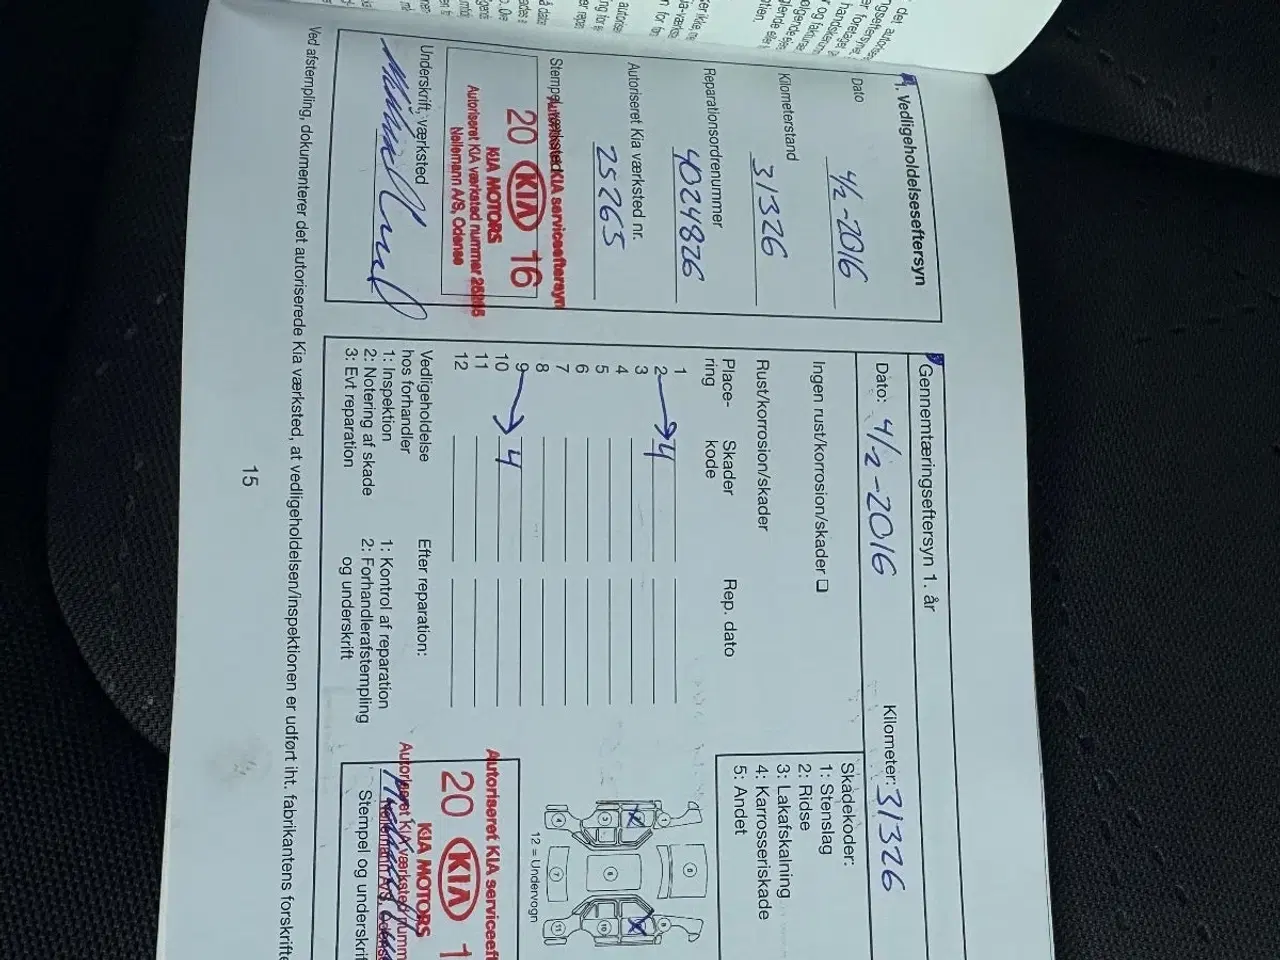 1. Vedligeholdelseseftersyn
Dato
4/2-2016
Kilometerstand
31326
Reparationsordrenummer
4024826
Autoriseret Kia værksted nr.
25265
Stempel, værksted
Autoriseret KIA serviceeftersyn
20 KIA 16
KIA MOTORS
Autoriseret KIA værksted nummer
Nellemann A/S, Odense
Underskrift, værksted
Gennemtæringseftersyn 1. år
Dato: 4/2-2016
Kilometer: 31326
Ingen rust/korrosion/skader
Rust/korrosion/skader
Place-
ring
Skader
kode
Rep. dato
1
2 4
3
4
5
6
7
8
9 4
10
11
12
Skadekoder:
1: Stenslag
2: Ridse
3: Lakafskalning
4: Karrosseriskade
5: Andet
12 = Undervogn
Vedligeholdelse
hos forhandler
1: Inspektion
2: Notering af skade
3: Evt reparation
Efter reparation:
1: Kontrol af reparation
2: Forhandlerafstempling
og underskrift
Autoriseret KIA serviceeft
20 KIA 1
KIA MOTORS
Autoriseret KIA værksted numm
Stempel og underskri
Ved afstempling, dokumenterer det autoriserede Kia værksted, at vedligeholdelsen/inspektionen er udført iht. fabrikantens forskrifte
15